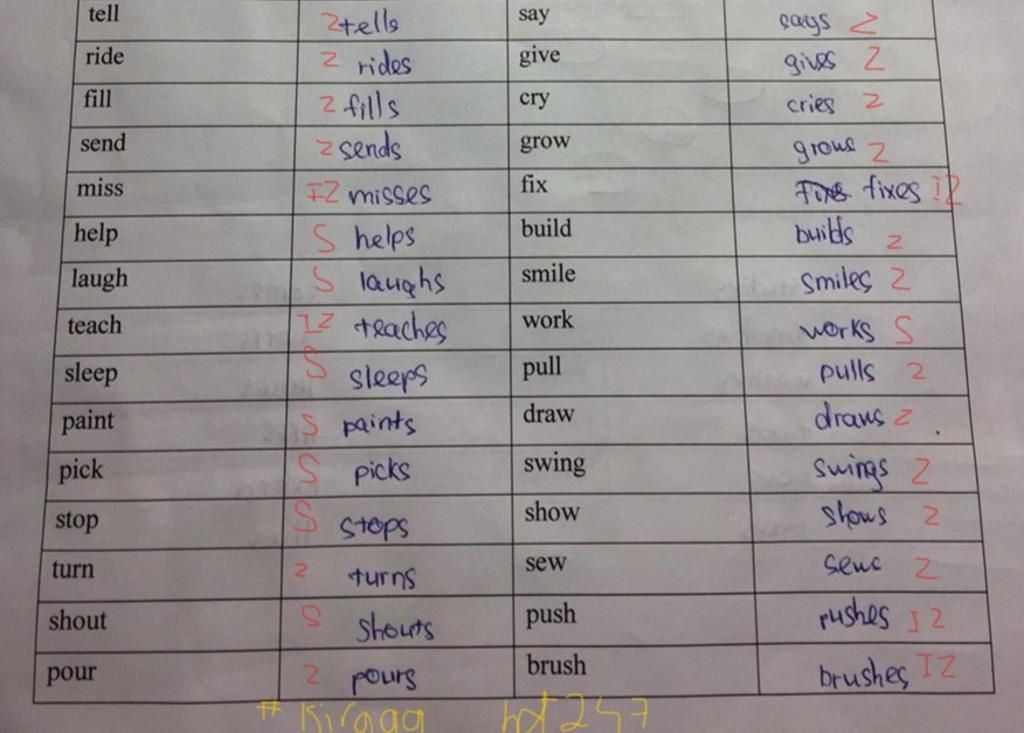 tell Z tells say says Z
ride Z rides give gives Z
fill Z fills cry cries Z
send Z sends grow grows Z
miss IZ misses fix fixes IZ
help S helps build builds Z
laugh S laughs smile smiles Z
teach IZ teaches work works S
sleep S sleeps pull pulls Z
paint S paints draw draws Z
pick S picks swing swings Z
stop S stops show shows Z
turn Z turns sew sews Z
shout S shouts push pushes IZ
pour Z pours brush brushes IZ
# Kiragg hot247